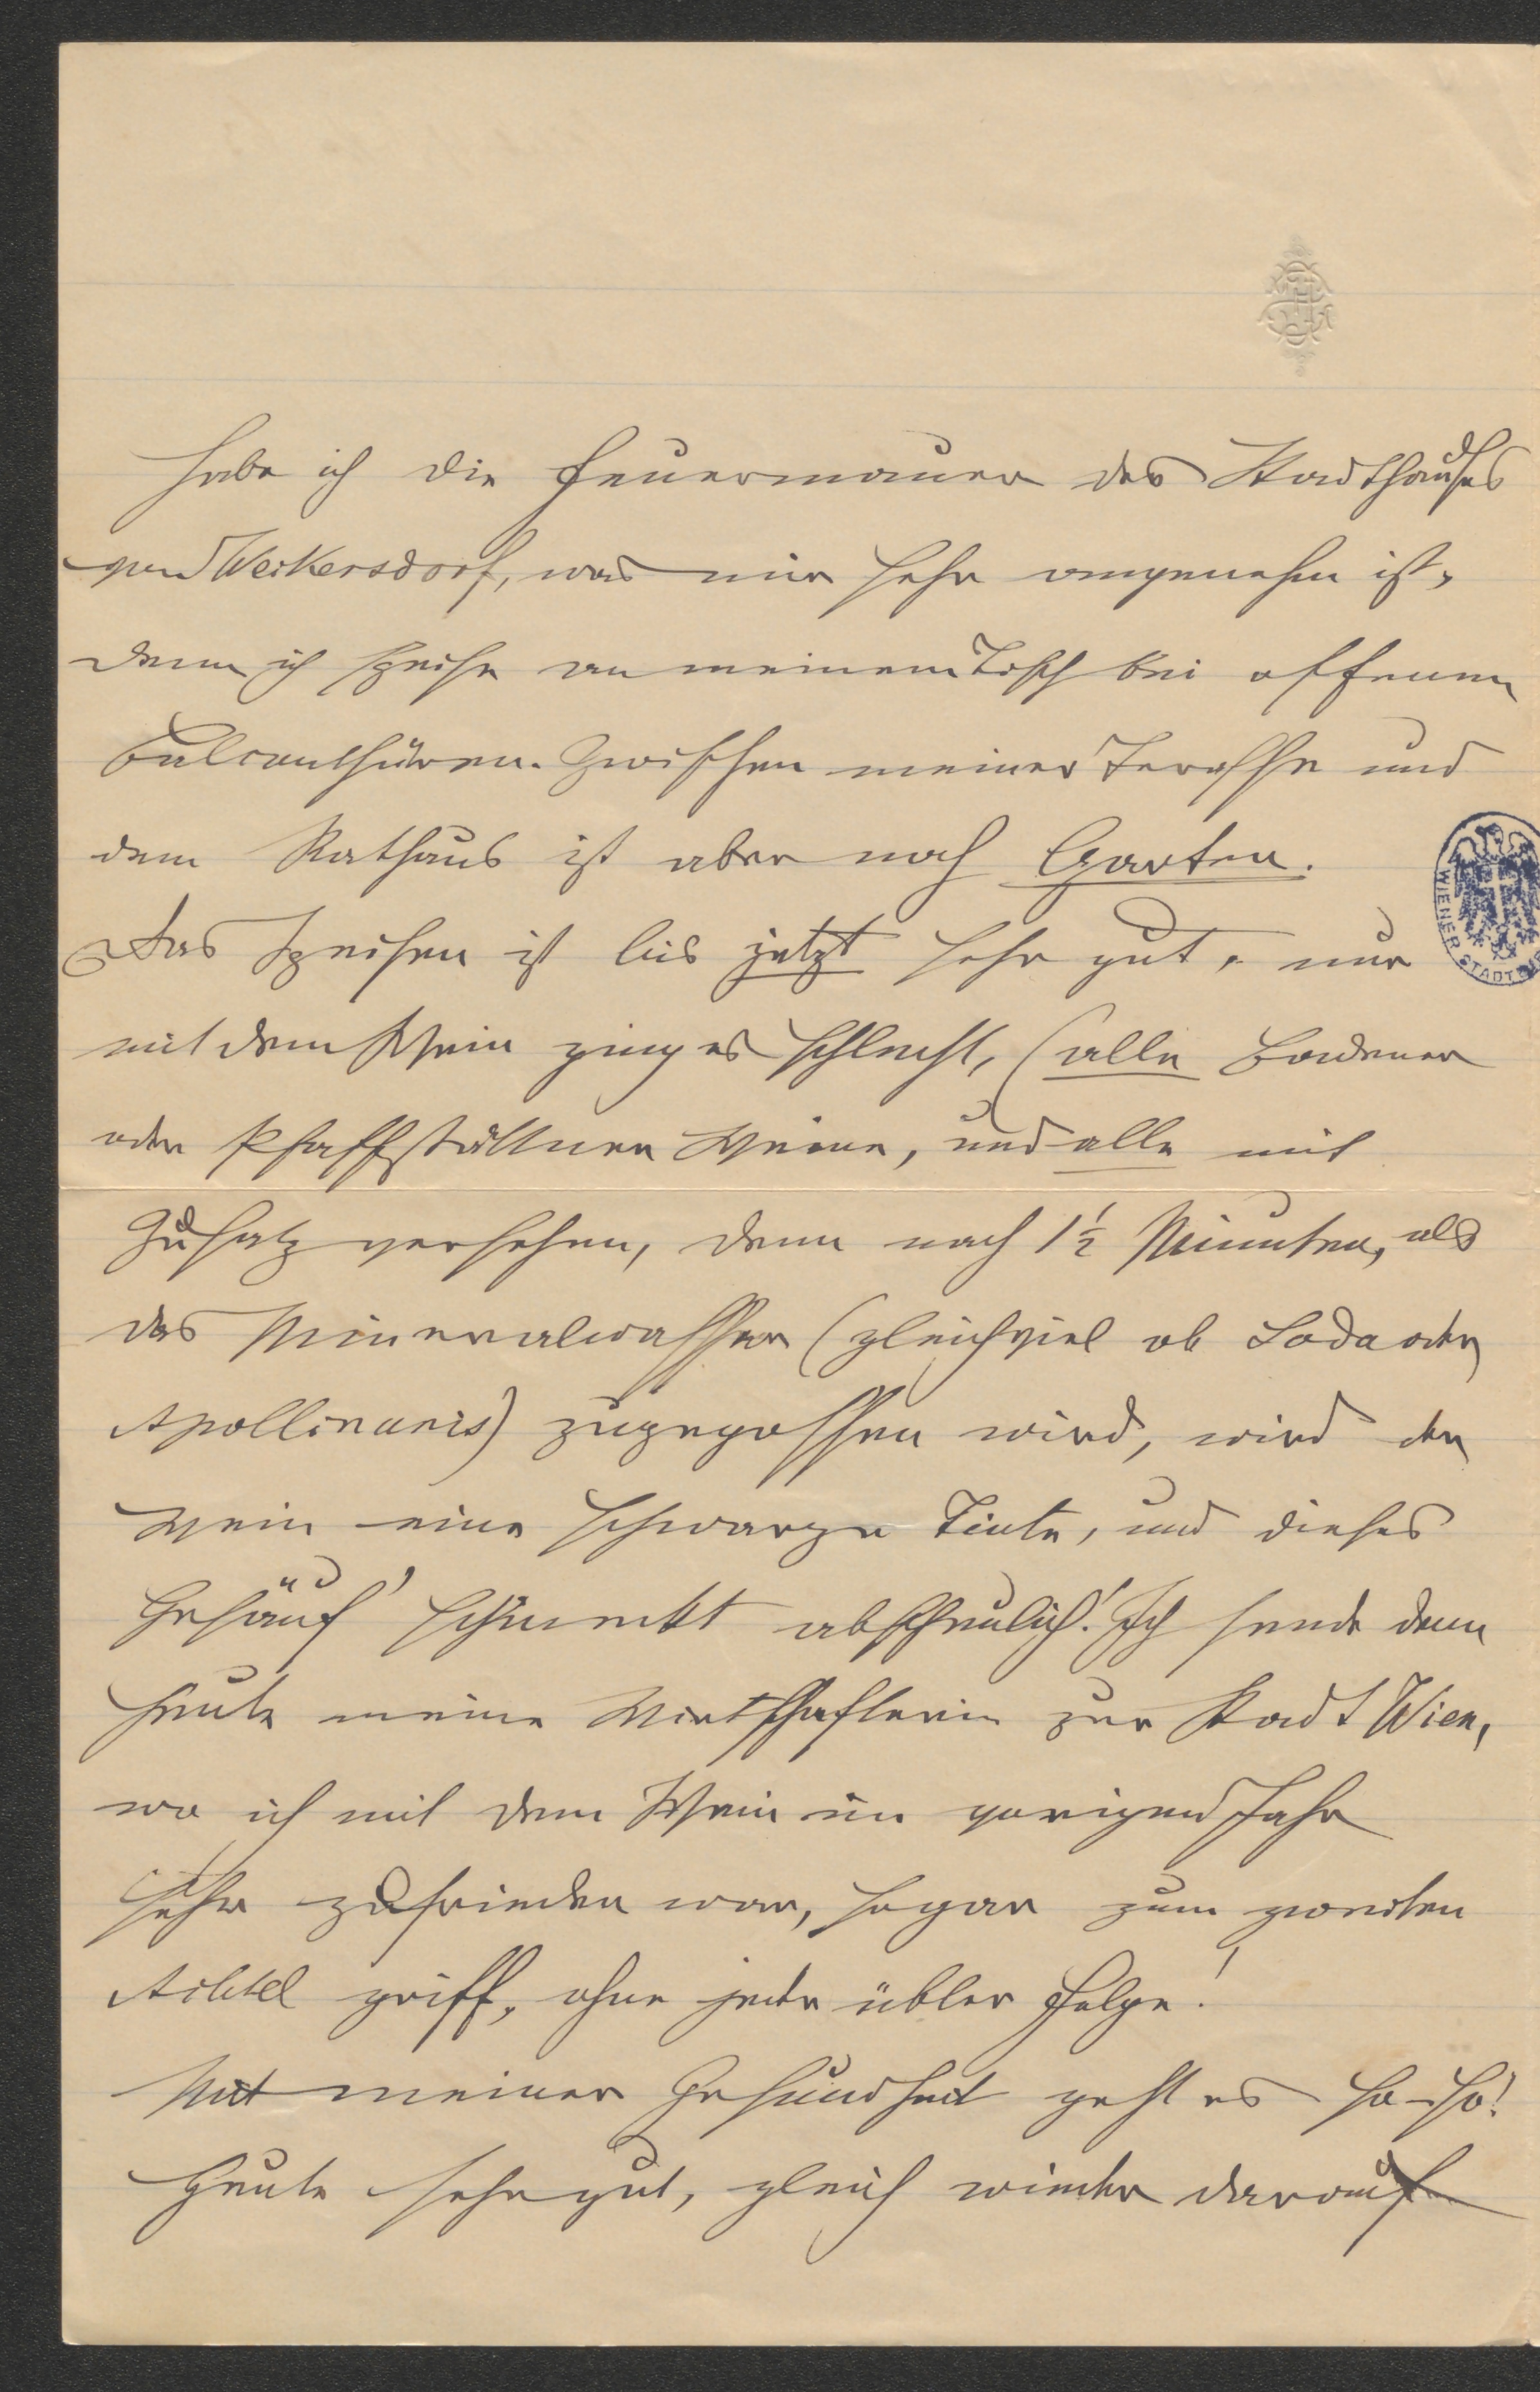 habe ich die Feuermauer des Stadthauses
von Weikersdorf, was mir sehr angenehm ist,
denn ich speise an meinem Tisch bei offenen
Balconthüren. Zwischen meiner Terasse und
dem Rathaus ist aber noch Garten.
Das Speisen ist bis jetzt sehr gut, nur
mit dem Wein ging es schlecht, (alle Badener
oder Pfaffstättner Weine, und alle mit
Zusatz versehen, denn nach 1½ Minuten, als
das Mineralwasser (gleichviel ob Soda oder
Apollinaris) zugegossen wird, wird der
Wein eine schwarze Tinte, und dieses
Gesäuf' schmeckt abscheulich! Ich sende denn
heute meine Wirtschafterin zur Stadt Wien,
wo ich mit dem Wein im vorigen Jahr
sehr zufrieden war, sogar zum zweiten
Achtel griff, ohne jede übler Folge!
Mit meiner Gesundheit geht es so-so!
Heute sehr gut, gleich wieder darauf
WIENER STADT